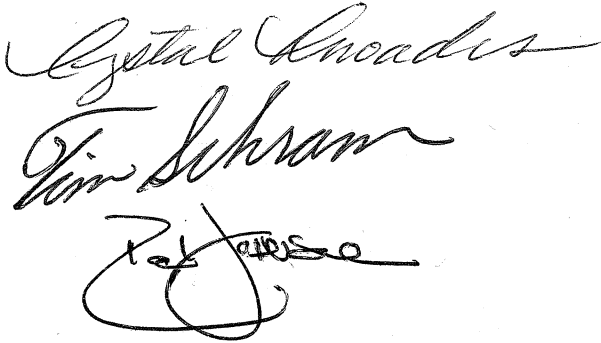 Crystal Rhoades
Tim Schram
Rod Johnson